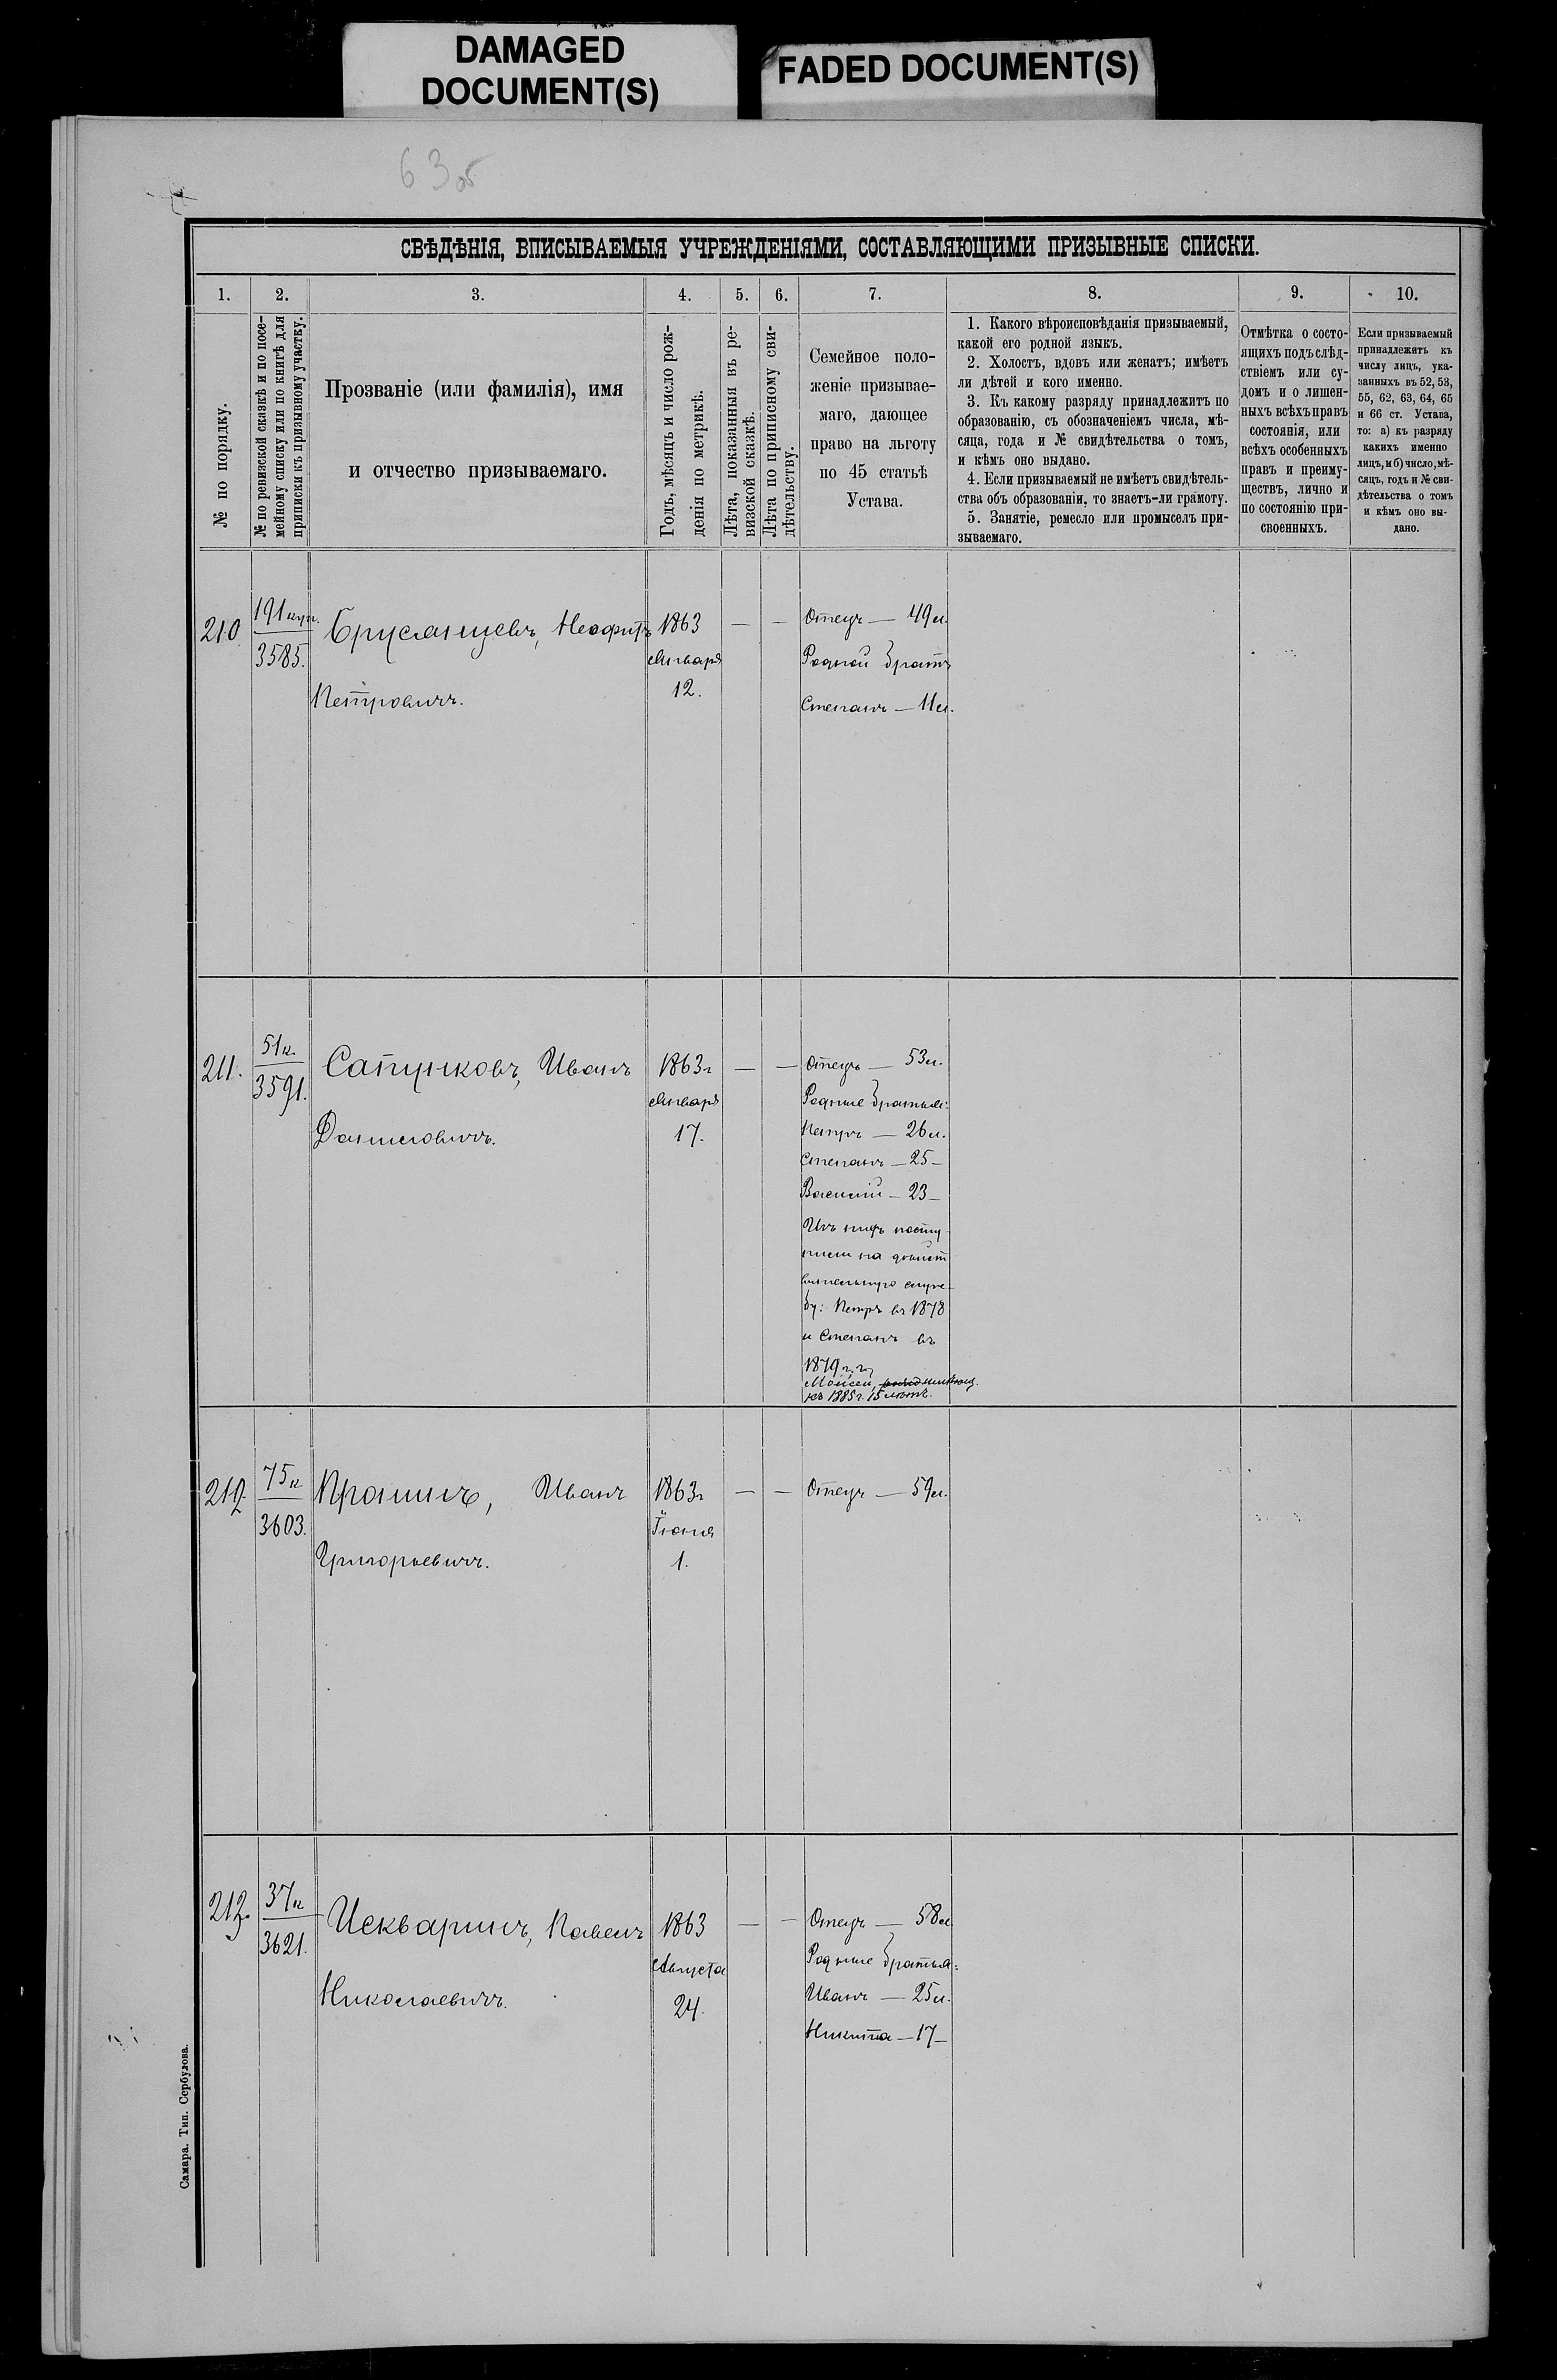 DAMAGED
DOCUMENT(S)
FADED DOCUMENT(S)
63 об
СВѢДѢНІЯ, ВПИСЫВАЕМЫЯ УЧРЕЖДЕНІЯМИ, СОСТАВЛЯЮЩИМИ ПРИЗЫВНЫЕ СПИСКИ.
1. 2. 3. 4. 5. 6. 7. 8. 9. 10.
№ по порядку.
№ по ревизской сказкѣ и по посе-
мейному списку или по книгѣ для
приписки къ призывному участку.
Прозваніе (или фамилія), имя
и отчество призываемаго.
Годъ, мѣсяцъ и число рож-
денія по метрикѣ.
Лѣта, показанныя въ ре-
визской сказкѣ.
Лѣта по приписному сви-
дѣтельству.
Семейное поло-
женіе призывае-
маго, дающее
право на льготу
по 45 статьѣ
Устава.
1. Какого вѣроисповѣданія призываемый,
какой его родной языкъ.
2. Холостъ, вдовъ или женатъ; имѣетъ
ли дѣтей и кого именно.
3. Къ какому разряду принадлежитъ по
образованію, съ обозначеніемъ числа, мѣ-
сяца, года и № свидѣтельства о томъ,
и кѣмъ оно выдано.
4. Если призываемый не имѣетъ свидѣтель-
ства объ образованіи, то знаетъ-ли грамоту.
5. Занятіе, ремесло или промыселъ при-
зываемаго.
Отмѣтка о состо-
ящихъ подъ слѣд-
ствіемъ или су-
домъ и о лишен-
ныхъ всѣхъ правъ
состоянія, или
всѣхъ особенныхъ
правъ и преиму-
ществъ, лично и
по состоянію при-
своенныхъ.
Если призываемый
принадлежитъ къ
числу лицъ, ука-
занныхъ въ 52, 53,
55, 62, 63, 64, 65
и 66 ст. Устава,
то: а) къ разряду
какихъ именно
лицъ, и б) число, мѣ-
сяцъ, годъ и № сви-
дѣтельства о томъ
и кѣмъ оно вы-
дано.
210. 191 куп. Бруслянцевъ, Неофитъ 1863 — — Отецъ — 49 л.
3585. Января Родной братъ
Петровичъ. 12. Степанъ — 11 л.
211. 51 к. Сапунковъ, Иванъ 1863 г — — Отецъ — 53 л.
3591. Января Родные братья:
Даниловичъ. 17. Петръ — 26 л.
Степанъ — 25 —
Василій — 23 —
Изъ нихъ посту
пили на дѣйст
вительную служ-
бу: Петръ въ 1878
и Степанъ въ
1879 г.г.
Моисей,
къ 1885 г. 15 лѣтъ.
212. 75 к. Крашинъ, Иванъ 1863 г — — Отецъ — 59 л.
3603. Іюня
Григорьевичъ. 1.
213. 37 к Искваринъ, Павелъ 1863 — — Отецъ — 58 л
3621. Августа Родные братья:
Николаевичъ. 24. Иванъ — 25 л.
Никита — 17 —
Самара. Тип. Сербулова.